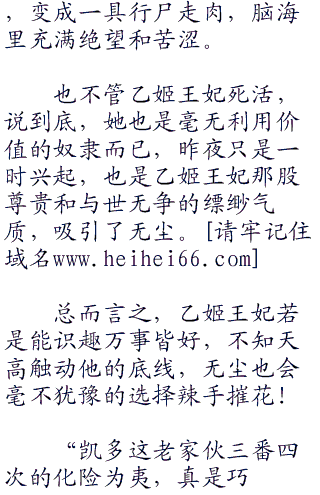 ，变成一具行尸走肉，脑海
里充满绝望和苦涩。
也不管乙姬王妃死活，
说到底，她也是毫无利用价
值的奴隶而已，昨夜只是一
时兴起，也是乙姬王妃那股
尊贵和与世无争的缥缈气
质，吸引了无尘。[请牢记住
域名www.heihei66.com]
总而言之，乙姬王妃若
是能识趣万事皆好，不知天
高触动他的底线，无尘也会
毫不犹豫的选择辣手摧花！
“凯多这老家伙三番四
次的化险为夷，真是巧